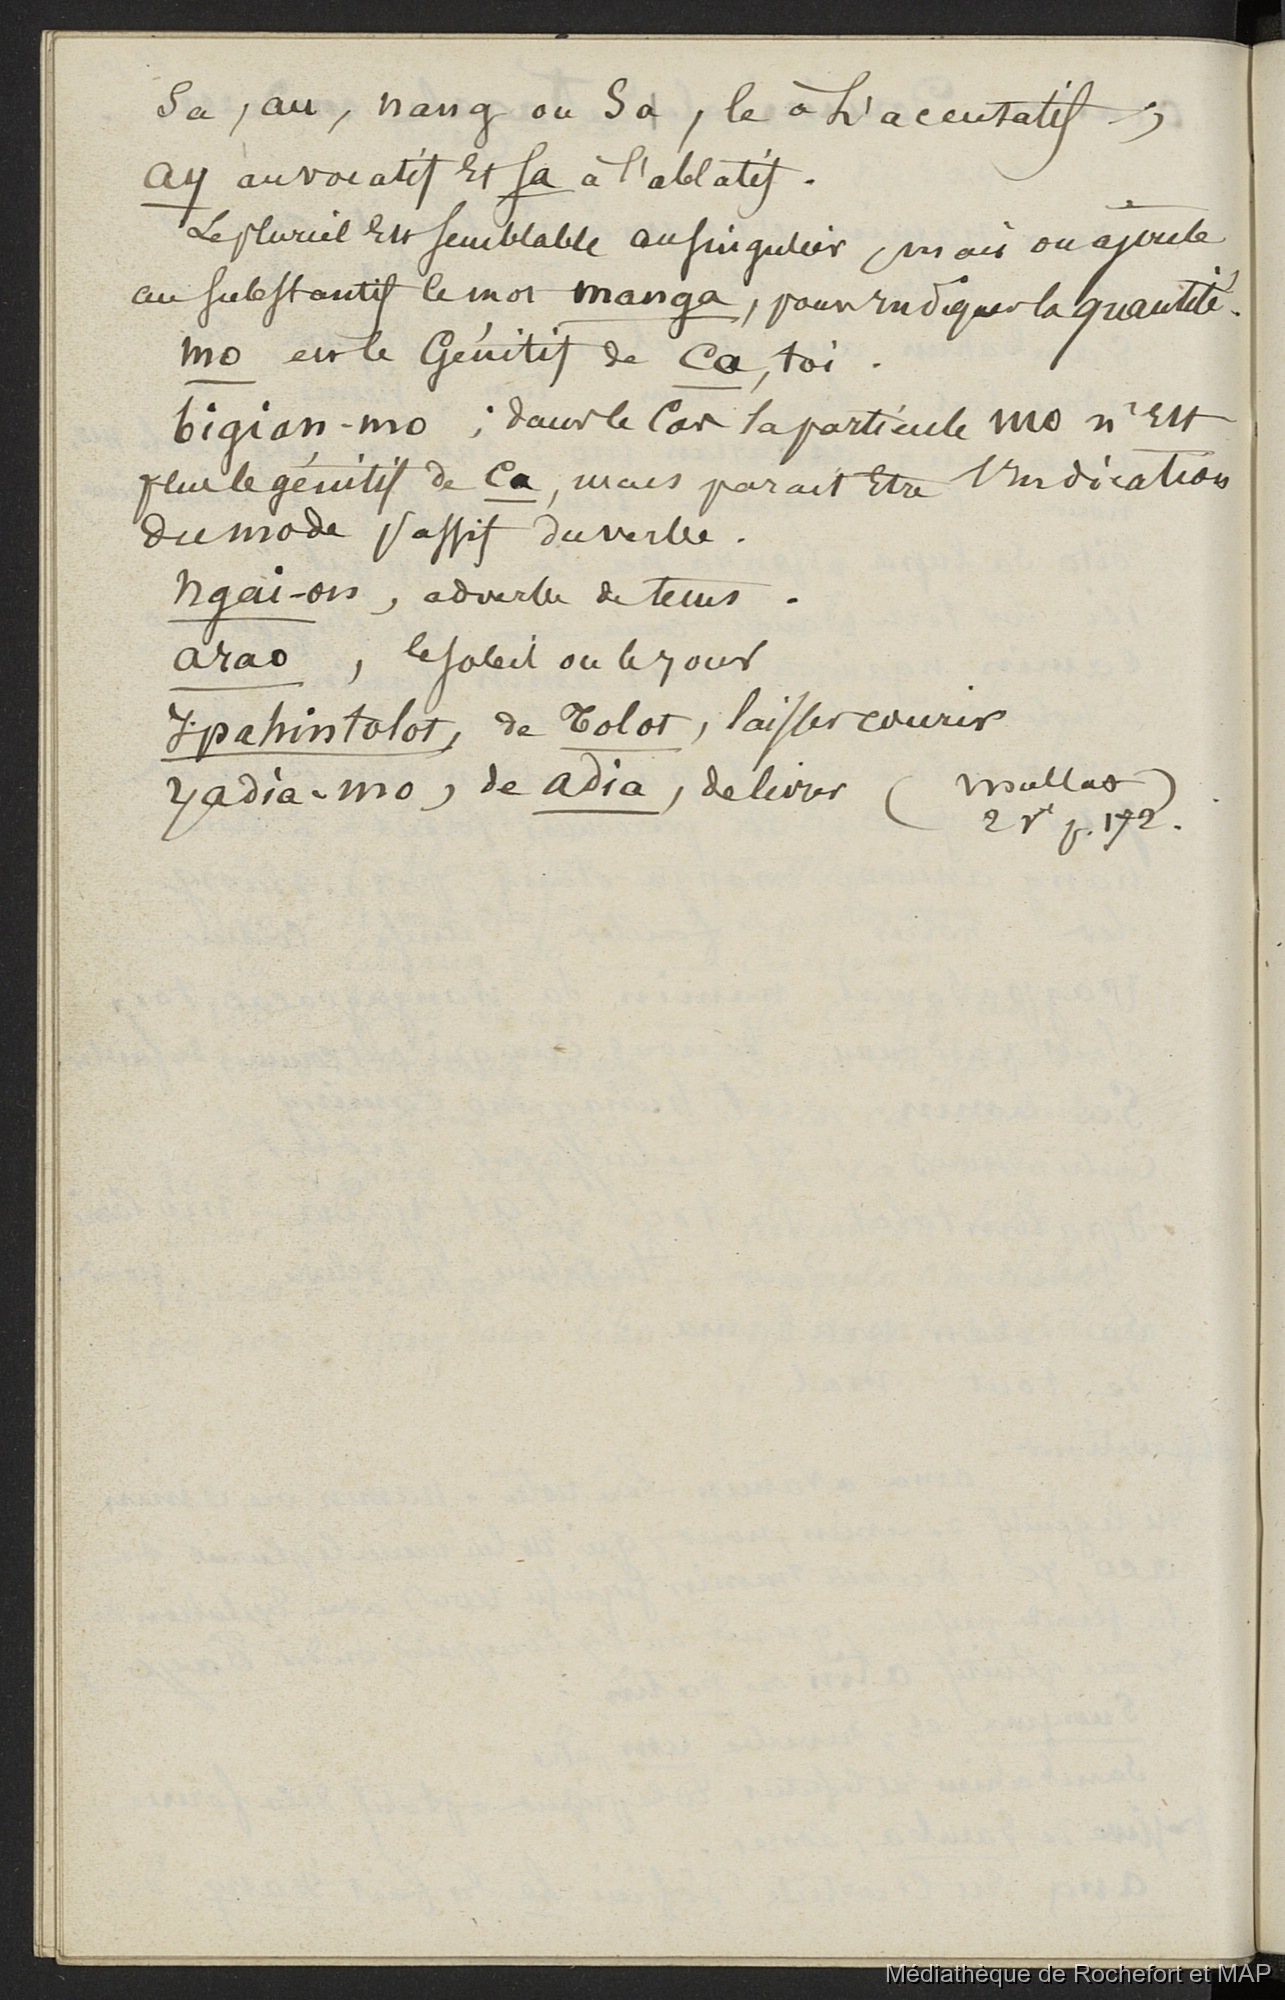 Sa, au, nang ou Sa, le à L'accusatif,
ay au vocatif Et Sa à l'ablatif.
Le pluriel Est semblable au singulier, mais on ajoute
au substantif le mot manga, pour indiquer la quantité.
mo est le Génitif de Ca, toi.
bigian-mo; dans le Cas la particule mo n'Est
plus le génitif de Ca, mais parait Etre l'indication
du mode passif du verbe.
ngai-on, adverbe de tems.
arao, le soleil ou le jour
Y-pahintolot, de Tolot, laisser courir
yadia-mo, de adia, delivrer (
2 vl p. 172.
Médiathèque de Rochefort et MAP